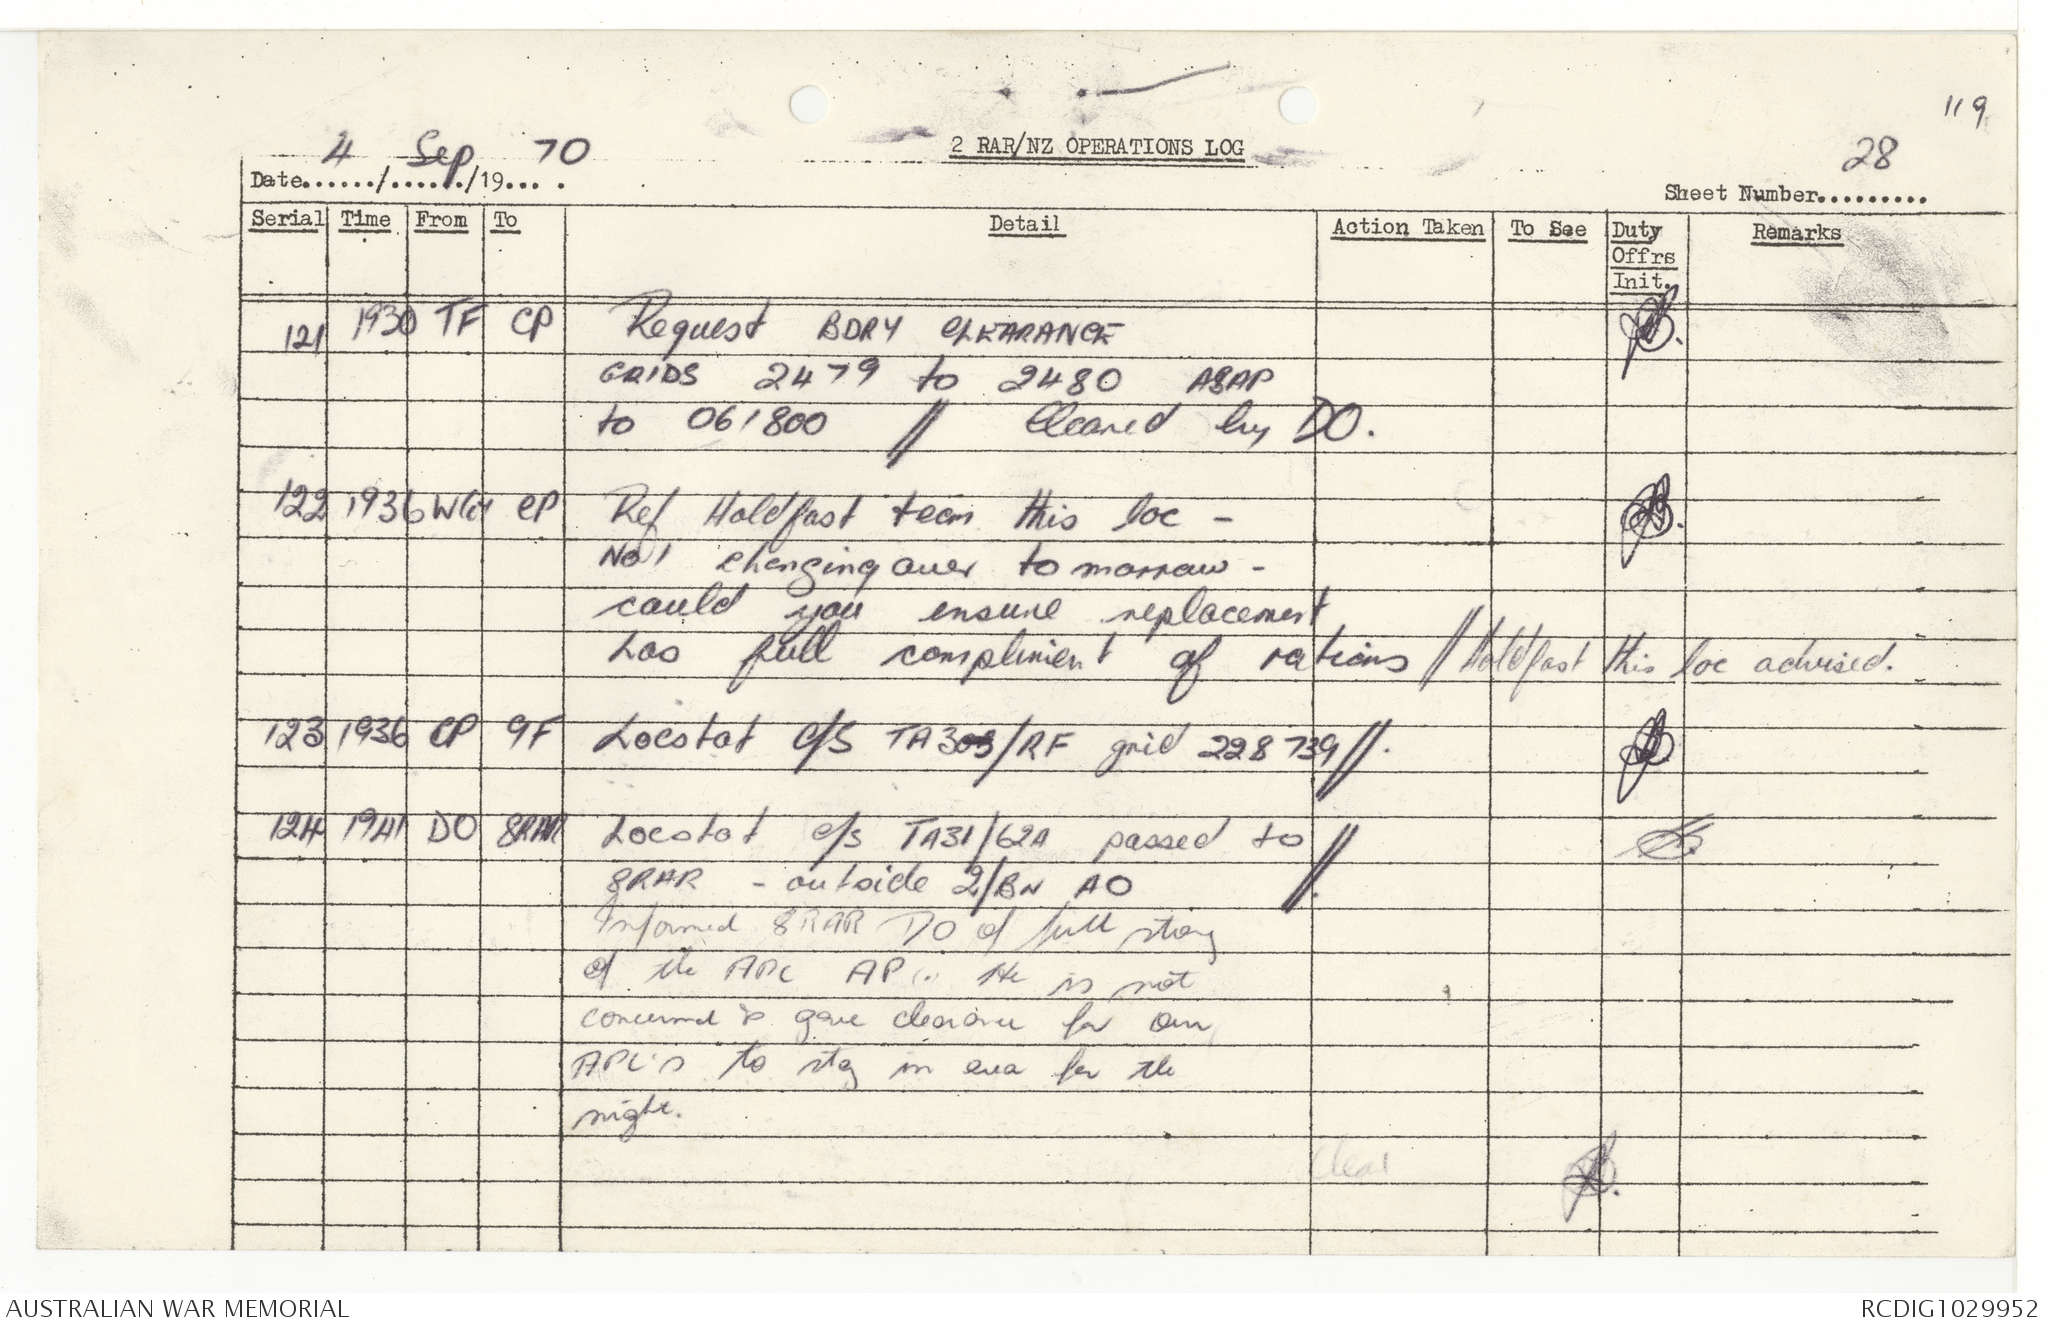 119
2 RAR/NZ OPERATIONS LOG
4 Sep 70
28
Date....../....../19... .
Sheet Number.........
Serial Time From To Detail Action Taken To See Duty Offrs Init. Remarks
121 1930 TF CP Request BDRY CLEARANCE
GRIDS 2479 to 2480 ASAP
to 061800 // Cleared by DO.
122 1936 CP Ref Holdfast team this loc -
No 1 changing over tomorrow -
could you ensure replacement
has full compliment of rations // Holdfast this loc advised.
123 1936 CP 9F Locstat c/s /RF grid 228739 //.
124 1941 DO 8RAR Locstat c/s TA31/62A passed to //
8RAR - outside 2/BN AO
Informed 8RAR DO of full story
of the APC AP He is not
concerned & gave clearance for our
APC's to stay in area for the
night.
Cleal
AUSTRALIAN WAR MEMORIAL
RCDIG1029952